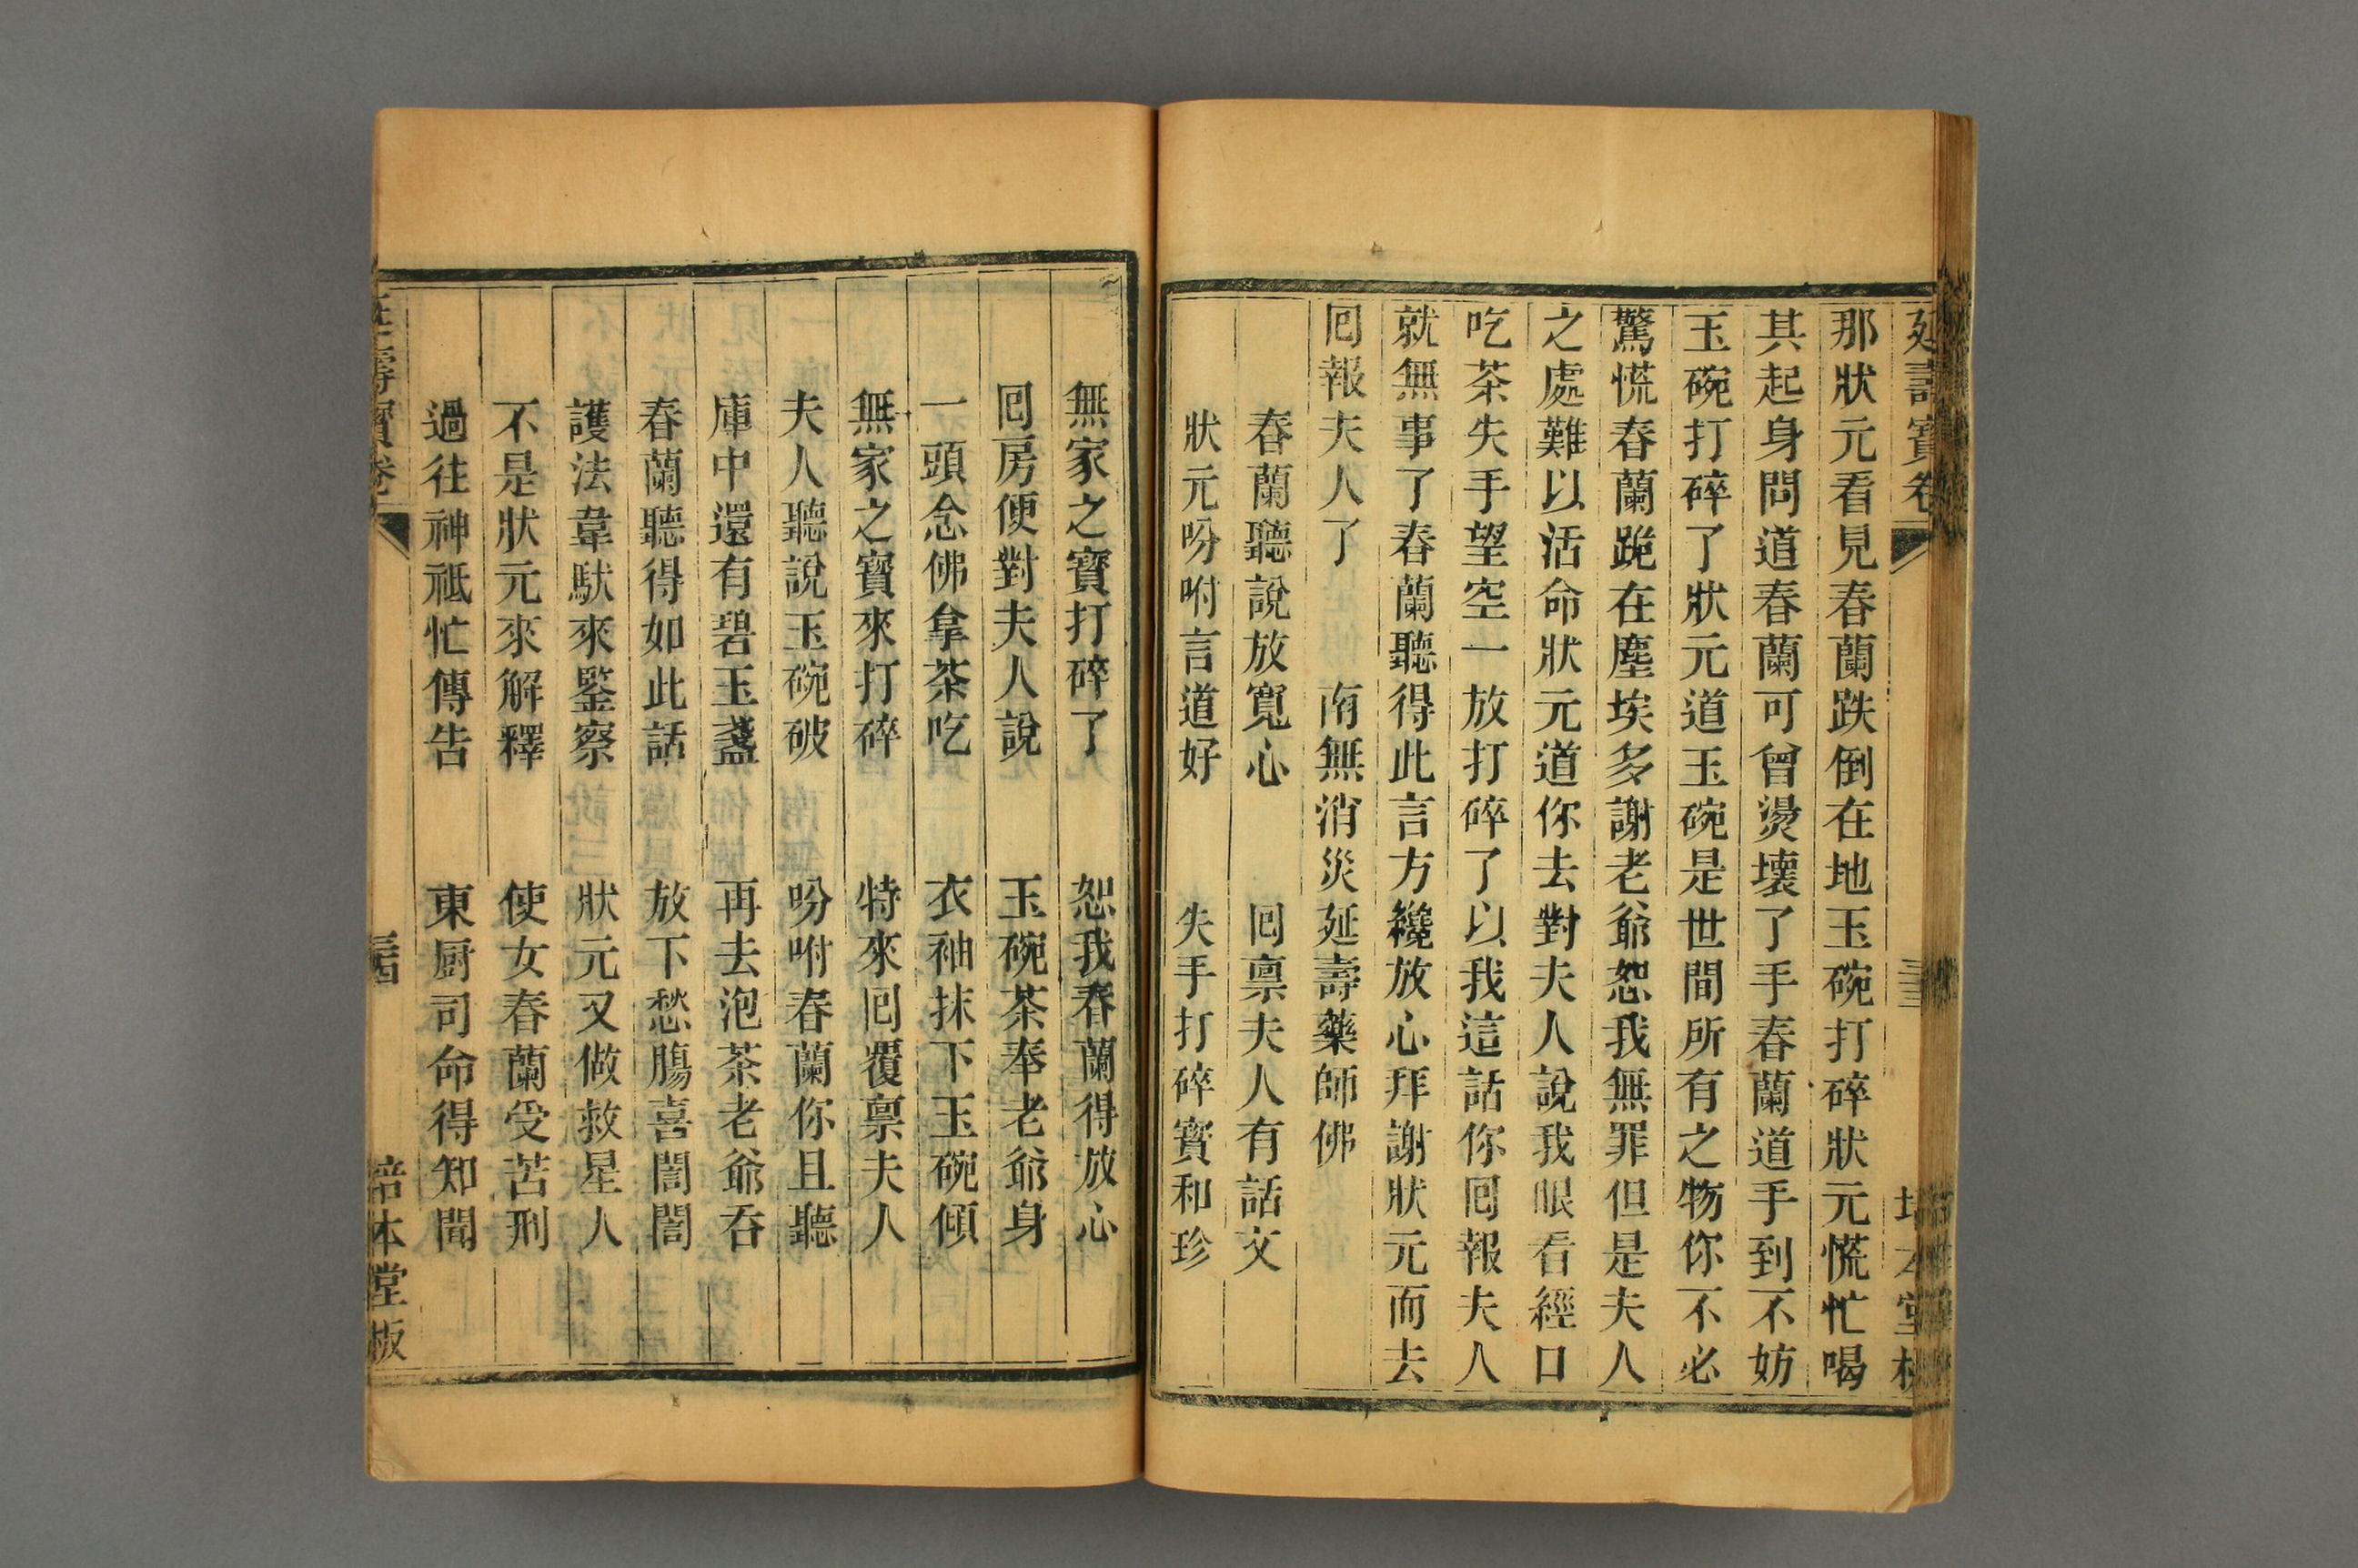 延壽寶卷
那狀元看見春蘭跌倒在地玉碗打碎狀元慌忙喝
其起身問道春蘭可曾燙壞了手春蘭道手到不妨
玉碗打碎了狀元道玉碗是世間所有之物你不必
驚慌春蘭跪在塵埃多謝老爺恕我無罪但是夫人
之處難以活命狀元道你去對夫人說我眼看經口
吃茶失手望空一放打碎了以我這話你囘報夫人
就無事了春蘭聽得此言方纔放心拜謝狀元而去
囘報夫人了　　南無消災延壽藥師佛
春蘭聽說放寬心　　囘禀夫人有話文
狀元吩咐言道好　　失手打碎寶和珍
無家之寶打碎了　　恕我春蘭得放心
囘房便對夫人說　　玉碗茶奉老爺身
一頭念佛拿茶吃　　衣袖抹下玉碗傾
無家之寶來打碎　　特來囘覆禀夫人
夫人聽說玉碗破　　吩咐春蘭你且聽
庫中還有碧玉盞　　再去泡茶老爺吞
春蘭聽得如此話　　放下愁腸喜誾誾
護法韋馱來鑒察　　狀元又做救星人
不是狀元來解釋　　使女春蘭受苦刑
過往神祗忙傳告　　東厨司命得知聞
延壽寶卷　　三四　　培本堂板